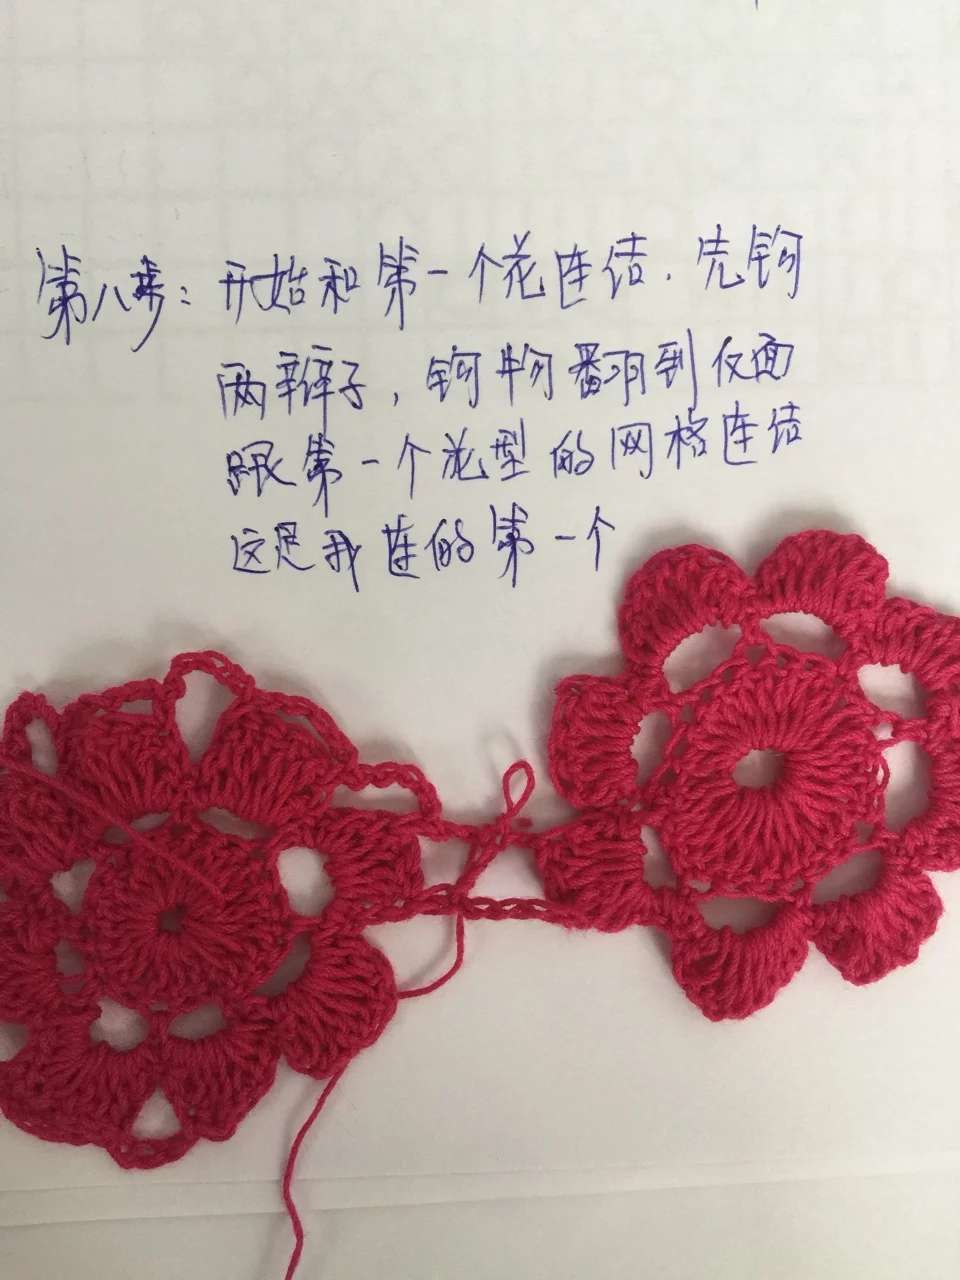 第八步：开始和第一个花连结．先钩
两辫子，钩物翻到反面
跟第一个花型的网格连结
这是我连的第一个